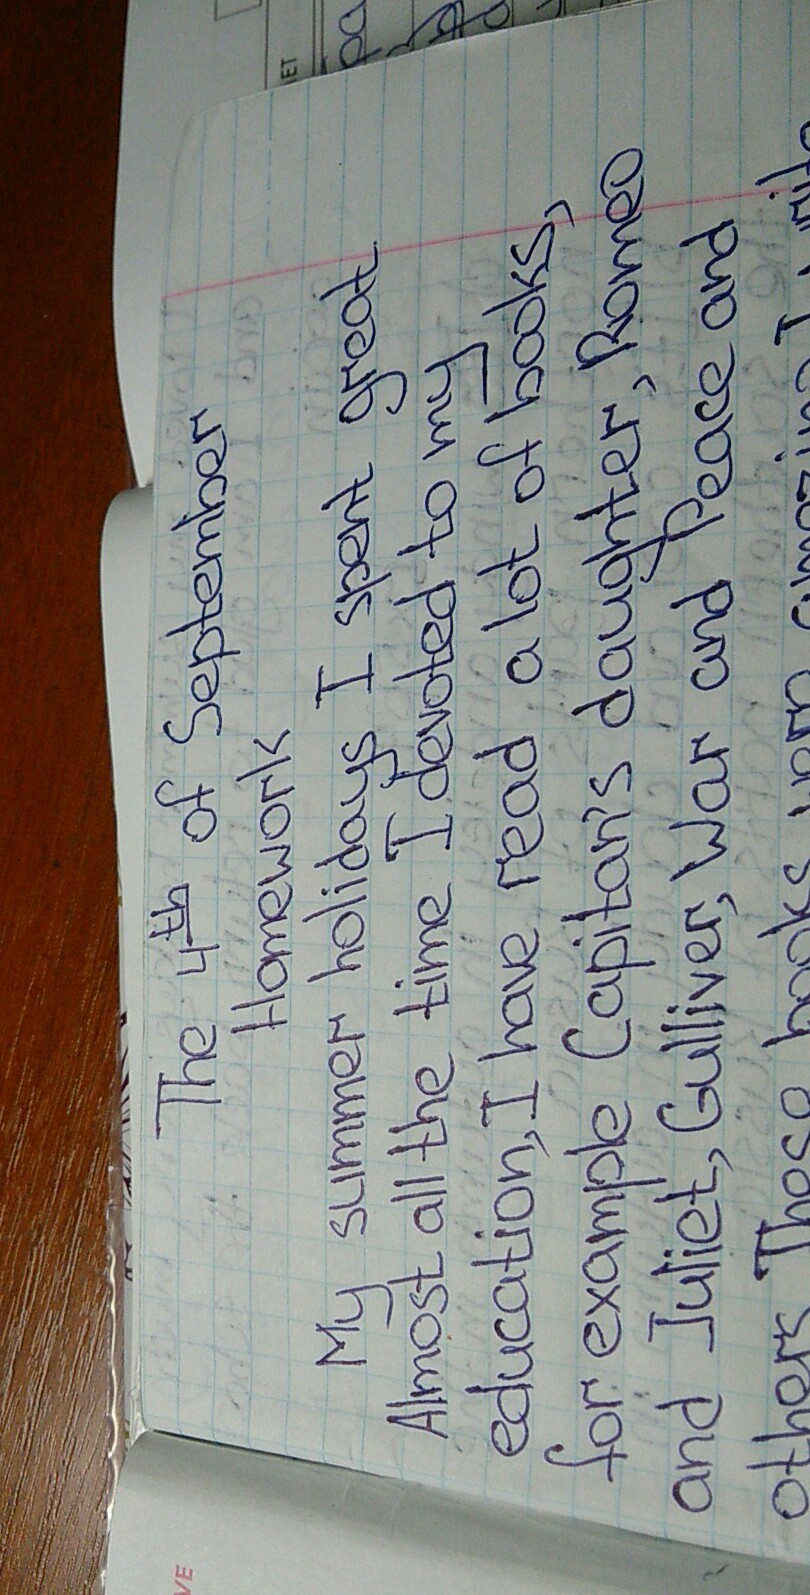 The 4th of September
Homework
My summer holidays I spent great
Almost all the time I devoted to my
education, I have read a lot of books,
for example Capitan's daughter, Romeo
and Juliet, Gulliver, War and Peace and
others. Those books were amazing I write